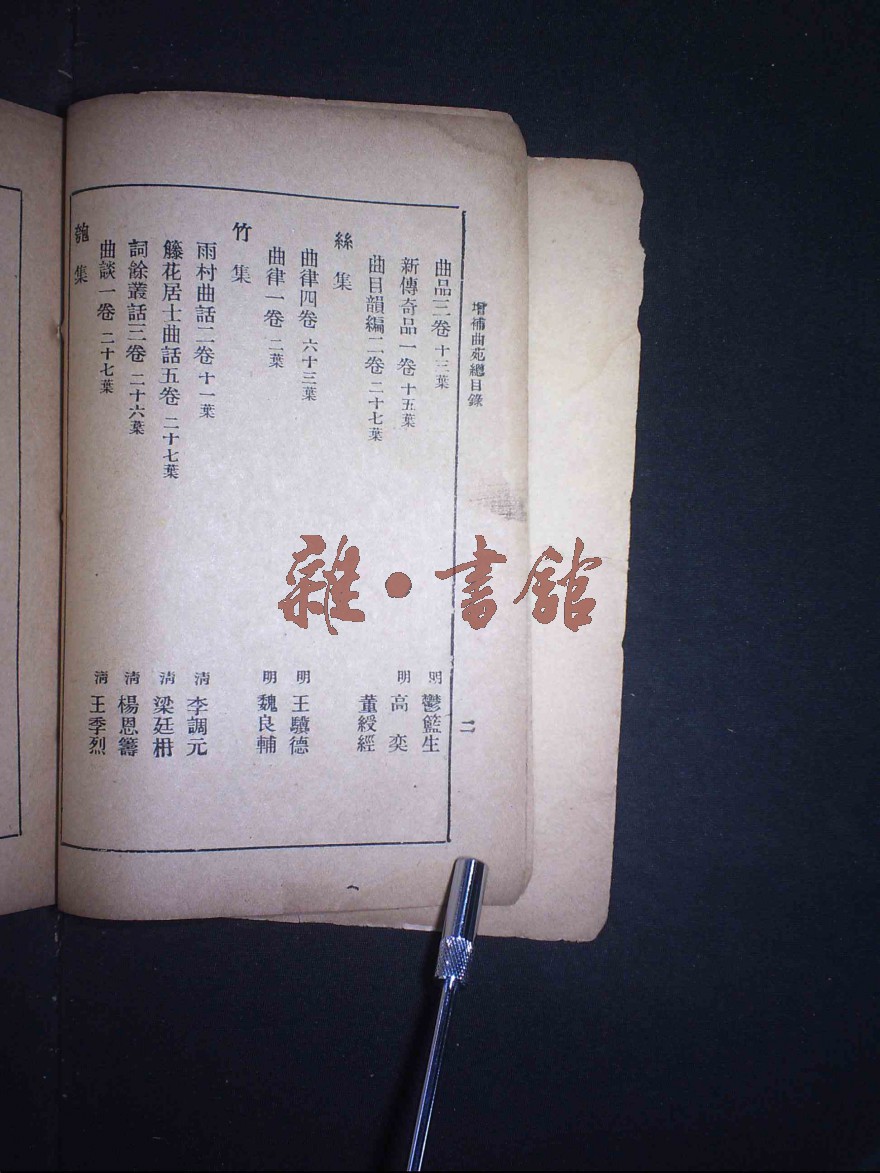 增補曲苑總目錄
二
曲品三卷 十三葉 明 鬱籃生
新傳奇品一卷 十五葉 明 高奕
曲目韻編二卷 二十七葉 董綬經
絲集
曲律四卷 六十三葉 明 王驥德
曲律一卷 二葉 明 魏良輔
竹集
雨村曲話二卷 十一葉 清 李調元
籐花居士曲話五卷 二十七葉 清 梁廷枏
詞餘叢話三卷 二十六葉 清 楊恩籌
曲談一卷 二十七葉 清 王季烈
匏集
雜·書館